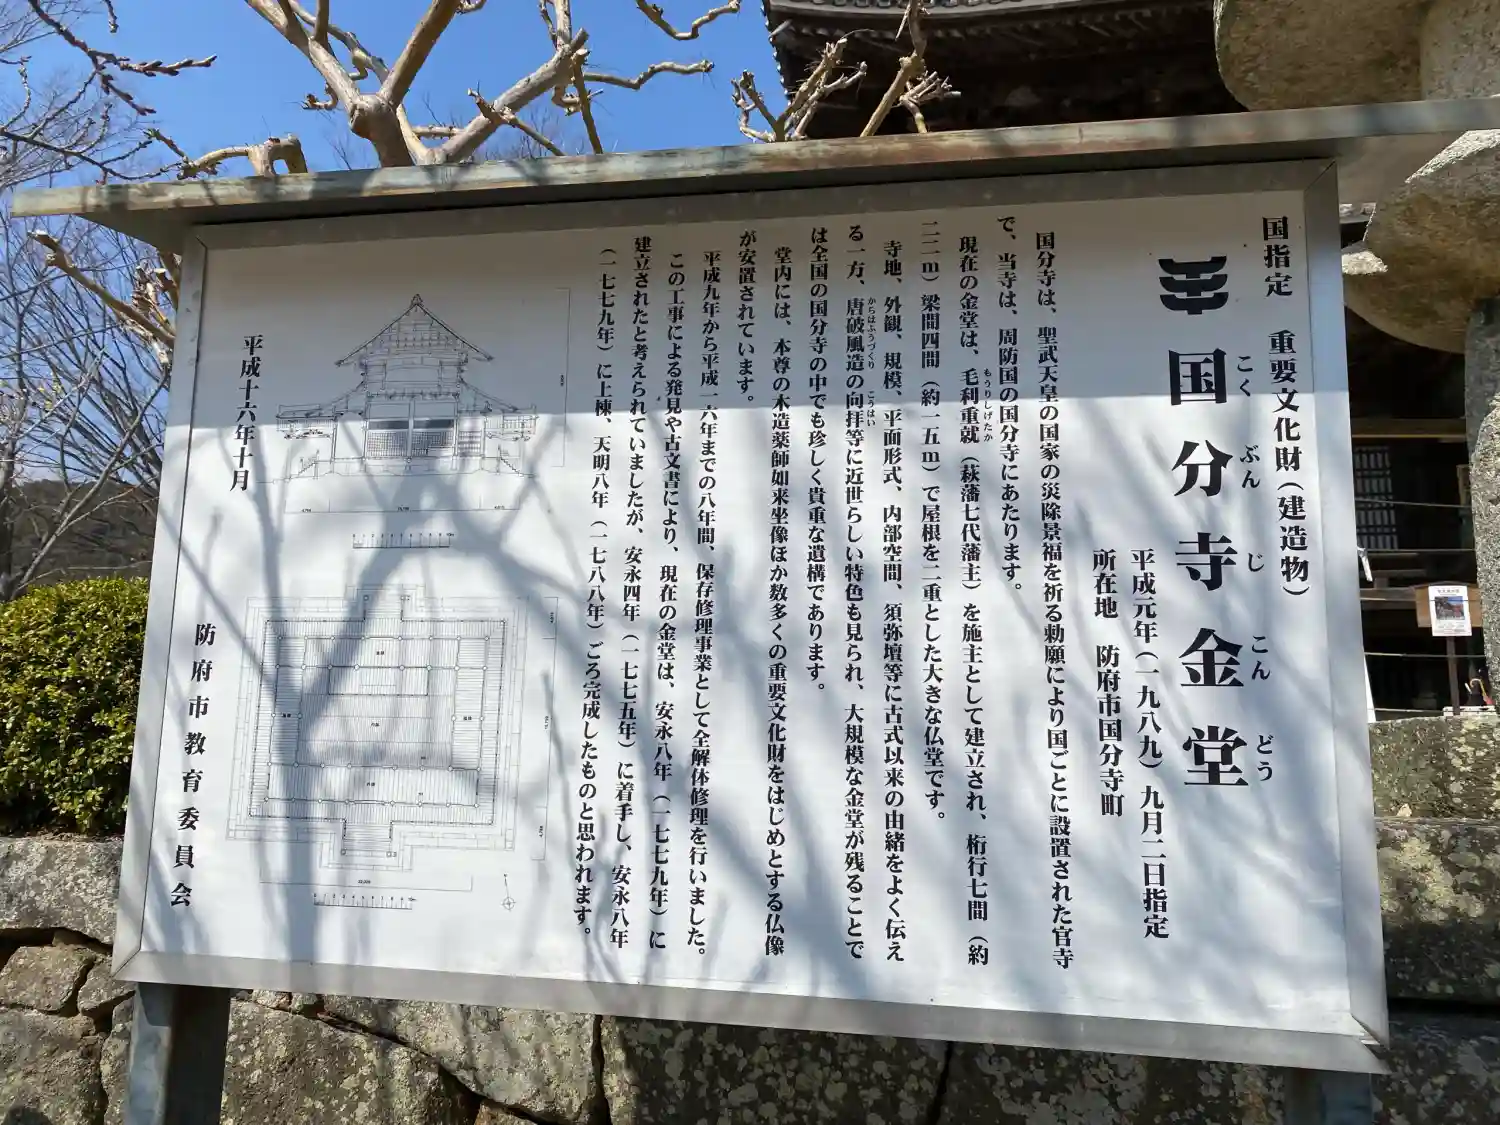 国指定 重要文化財(建造物)
国分寺金堂
こくぶんじこんどう
平成元年(一九八九)九月二日指定
所在地 防府市国分寺町
国分寺は、聖武天皇の国家の災除景福を祈る勅願により国ごとに設置された官寺
で、当寺は、周防国の国分寺にあたります。
現在の金堂は、毛利重就(萩藩七代藩主)を施主として建立され、桁行七間(約
もうりしげたか
二二m)梁間四間(約一五m)で屋根を二重とした大きな仏堂です。
寺地、外観、規模、平面形式、内部空間、須弥壇等に古式以来の由緒をよく伝え
る一方、唐破風造の向拝等に近世らしい特色も見られ、大規模な金堂が残ることで
からはふうつくり こうはい
は全国の国分寺の中でも珍しく貴重な遺構であります。
堂内には、本尊の木造薬師如来坐像ほか数多くの重要文化財をはじめとする仏像
が安置されています。
平成九年から平成一六年までの八年間、保存修理事業として全解体修理を行いました。
この工事による発見や古文書により、現在の金堂は、安永八年(一七七九年)に
建立されたと考えられていましたが、安永四年(一七七五年)に着手し、安永八年
(一七七九年)に上棟、天明八年(一七八八年)ごろ完成したものと思われます。
平成十六年十月
防府市教育委員会